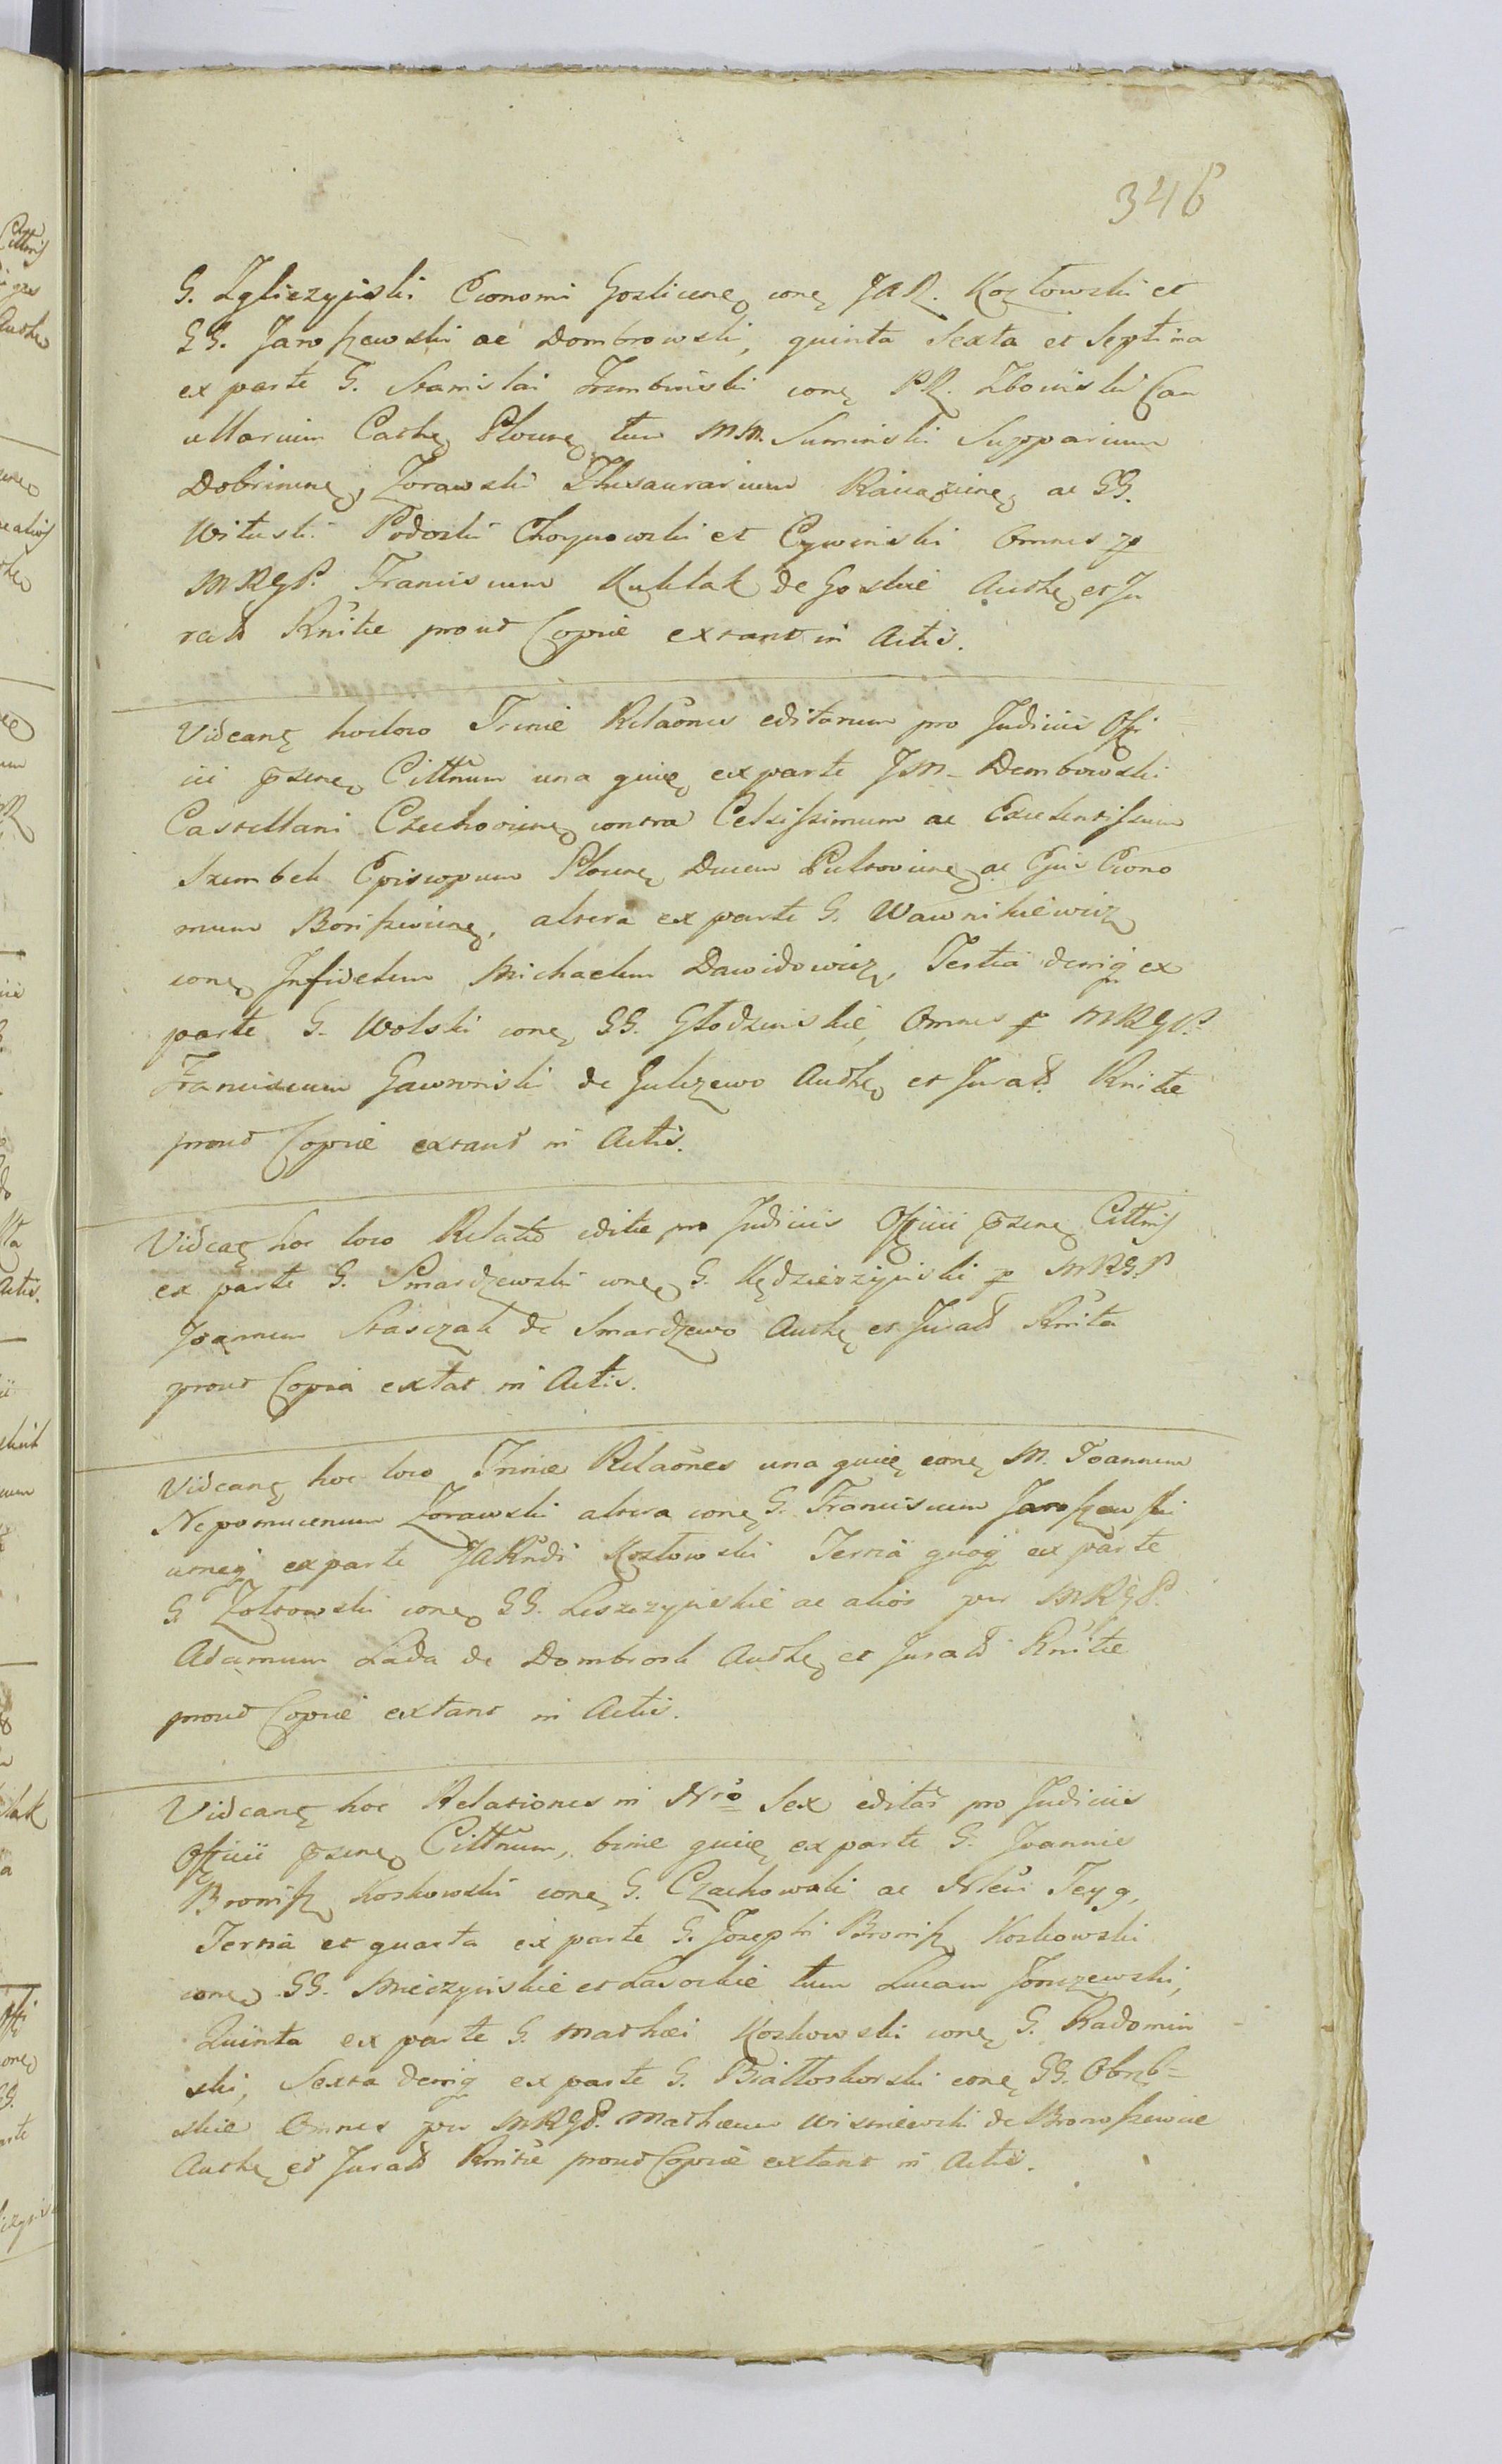 346
G. Zgliczyński Economi Goslicens conq JAR. Kozłowski et
GG. Jaroszewski ac Dombrowski, quinta Sexta et Septima
ex parte G. Stanislai Trembinski conq PR. Zboinski Can
cellarium Cathe Plocens tum MM. Suminski Supparium
Dobrinens, Zorawski Thesaurarium Raciazens ac GG.
Wituski Podoski Chorynowski et Cywinski Omnes p
MRGP. Franciscum Kuklak de Goskie Authe et Ju
ratt Knitie prout Copiæ extant in Actis.
Videant hocloco Trinæ Relaones editarum pro Judiciis Offi
cii pszens Cittnum una quie ex parte JM. Dembowski
Castellani Czechoviens contra Celsissimum ac Excelentissum
Szembek Episcopum Plocens Ducem Pultoviens ac Ejus Econo
mum Boriszeviens, altera ex parte G. Wawnikiewicz
conq Infidelem Michaelem Dawidowicz, Tertia deniq ex
parte G. Wolski conq GG. Głodzinskie, Omnes p MRGP.
Franciscum Gawronski de Gulczewo Authe et Juratt Knitie
prout Copiæ extant in Actis.
Videat hoc loco Relatio editæ pro Judiciis Officii pszens Cittnis
ex parte G. Smardzewski conq G. Kędzierzyński p MRGP
Joannem Stasczak de Smardzewo Authe et Juratt Knita
prout Copia extat in Actis.
Videant hoc loco Trinæ Relaones una quie conq M. Joannem
Nepomucenum Zorawski altera conq G. Franciscum Jaroszewski
utneq ex parte JARndi Kozłowski Tertia quoq ex parte
G Zoltowski conq GG. Leszczynskie ac alios per MRGP.
Adamum Lada de Dombrosk Authe et Juratt Knitie
prout Copiæ extant in Actis.
Videant hoc Relationes in Nro Sex editar pro Judiciis
Officii pszens Cittnum, binæ quie ex parte G. Joannis
Bronisz Koskowski conq G. Czachowski ac Teyg,
Tertia et quarta ex parte G. Josephi Bronisz Koskowski
conq GG. Mieczynskie et Lasockie tum Lucam Jonczewski,
Quinta ex parte G. Mathæi Koskowski conq G. Radomin
ski, Sexta deniq ex parte G. Białłoskorski conq GG. Obręb-
skie Omnes per MRGP. Mathæum Wisniewski de Bronoszewice
Authe et Juratt Knitie prout Copiæ extant in Actis.